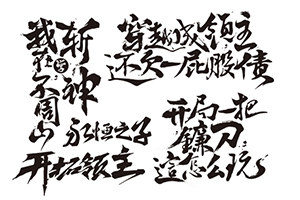 我在不周山
斩神
穿越成领主
还欠一屁股债
永恒之子
开拓领主
开局一把
镰刀
這怎么玩